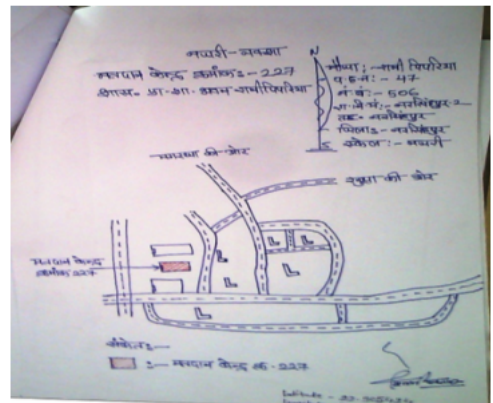 नजरी-नक्शा
मतदान केन्द्र क्रमांक:- 227
शास. प्रा. शा. भवन रानीपिपरिया
N
मौजा: रानी पिपरिया
प.ह.नं:- 47
नं.बं:- 506
रा.नि.मं:- नरसिंहपुर-2
तह- नरसिंहपुर
जिला:- नरसिंहपुर
स्केल:- नजरी
S
की ओर
की ओर
मतदान केन्द्र
क्रमांक 227
संकेत:-
:- मतदान केन्द्र क्र. 227